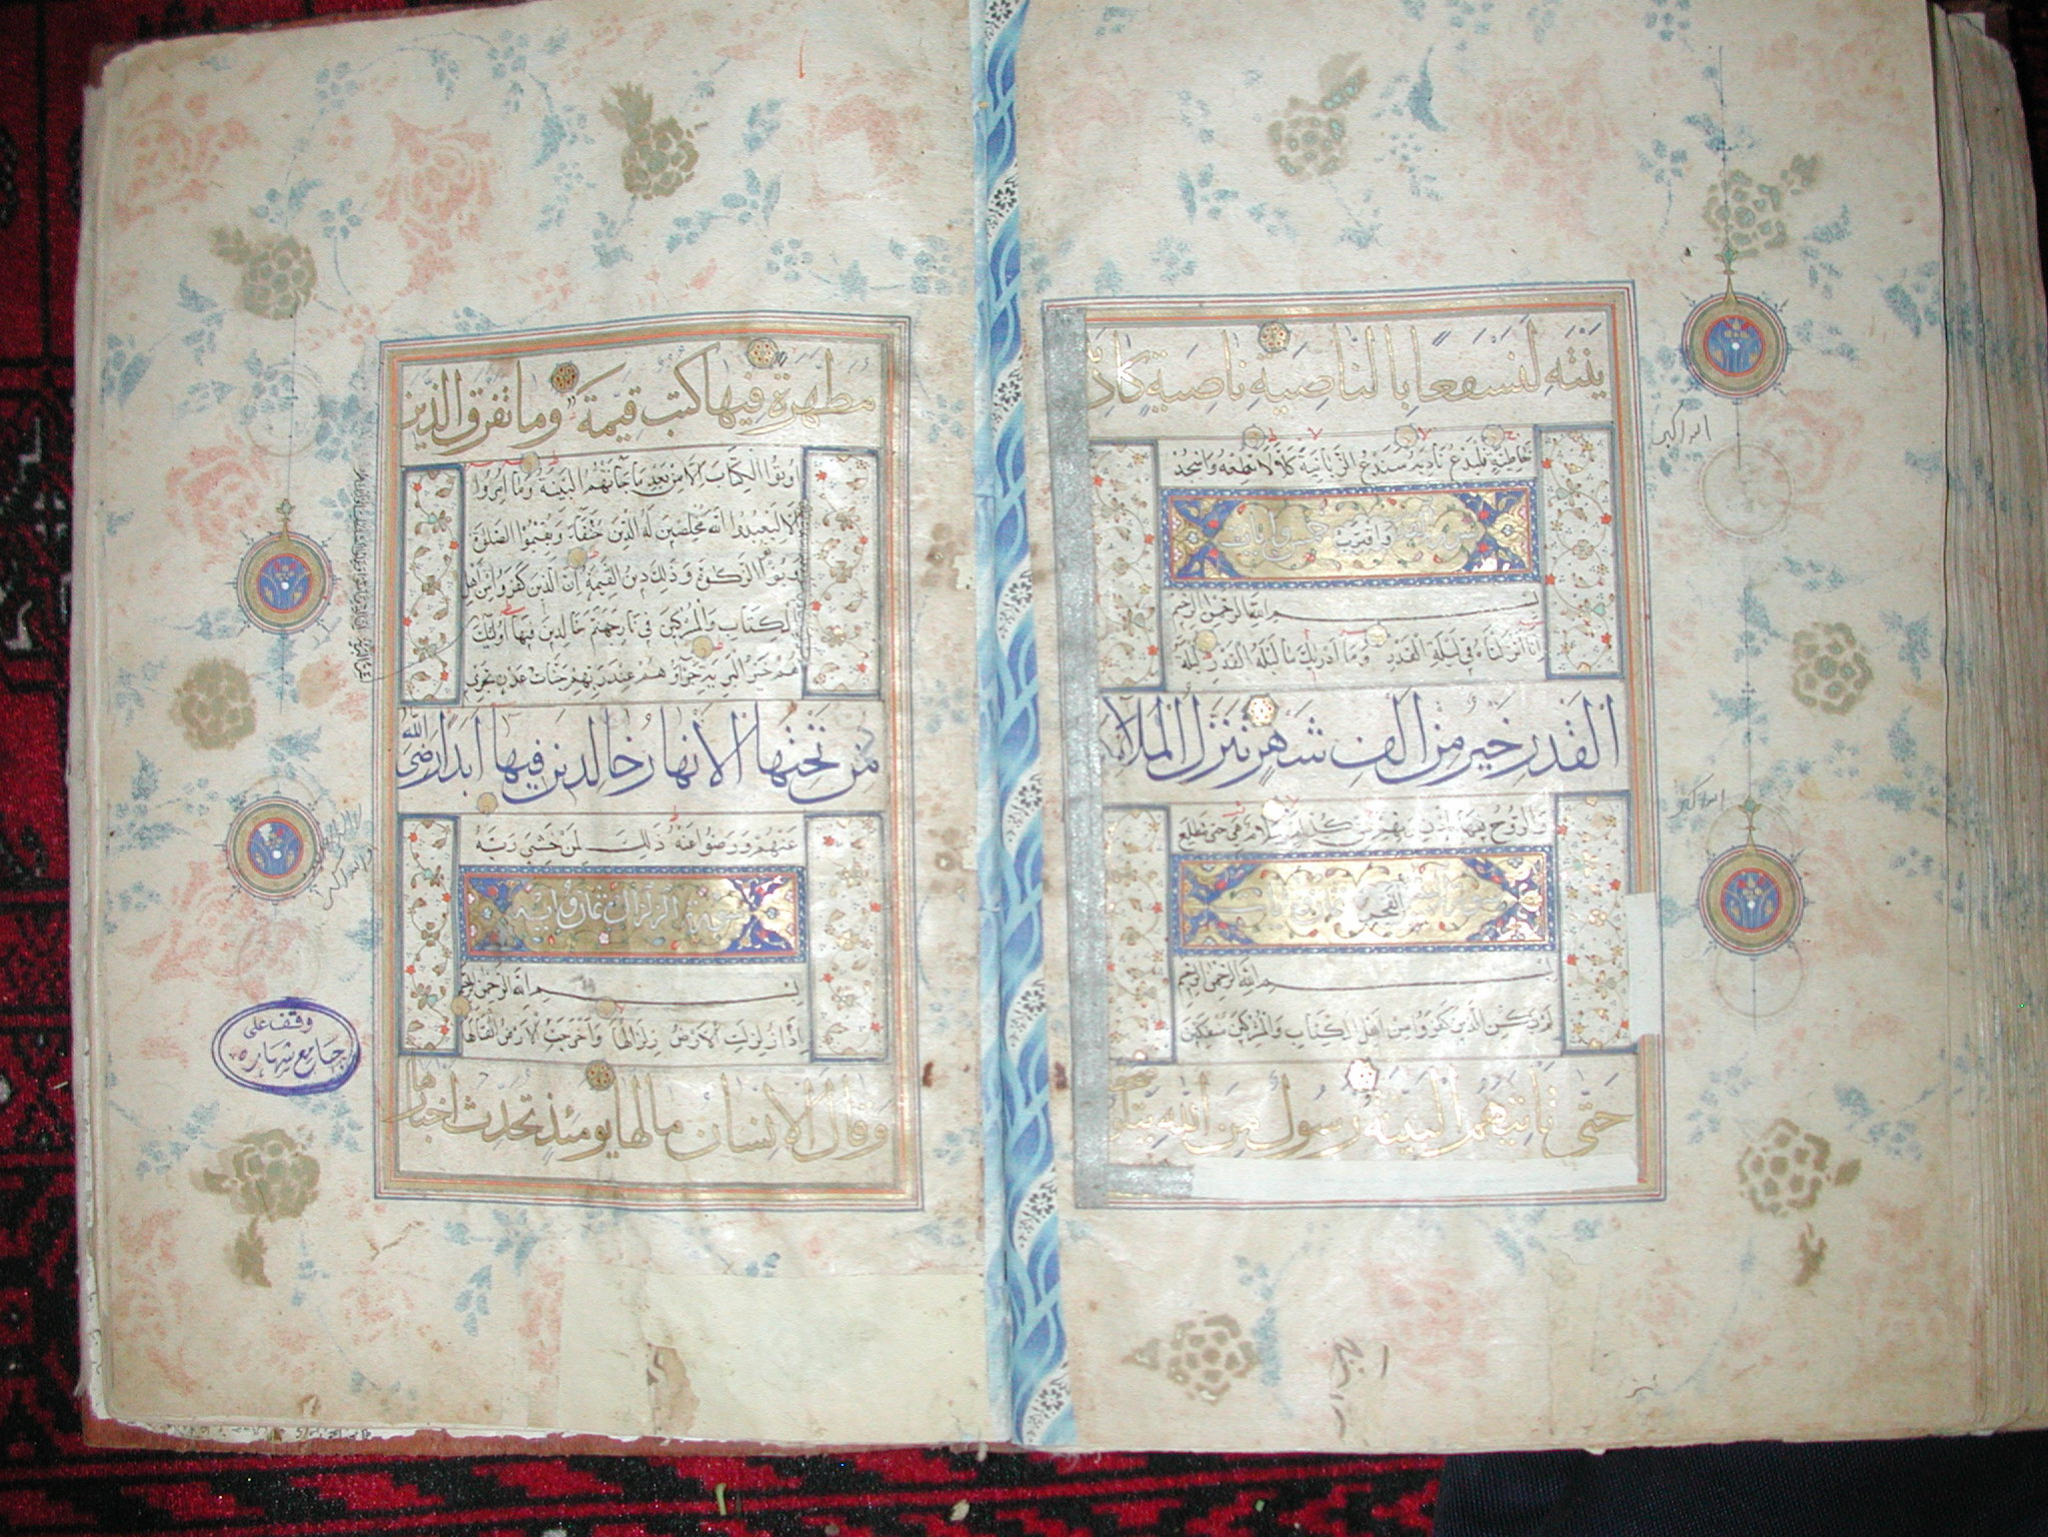 ينته لنسفعا بالناصية ناصية كاذبة
خاطئة فليدع ناديه سندع الزبانية كلا لا تطعه واسجد
واقترب
بسم الله الرحمن الرحيم
انا انزلناه في ليلة القدر وما ادريك ما ليلة القدر ليلة
القدر خير من الف شهر تنزل الملائكة
والروح فيها باذن ربهم من كل امر سلام هي حتى مطلع
الفجر
بسم الله الرحمن الرحيم
لم يكن الذين كفروا من اهل الكتاب والمشركين منفكين
حتى تاتيهم البينة رسول من الله يتلو
الله اكبر
الله اكبر
مطهرة فيها كتب قيمة وما تفرق الذين
اوتوا الكتاب الا من بعد ما جاءتهم البينة وما امروا
الا ليعبدوا الله مخلصين له الدين حنفاء ويقيموا الصلوة
ويؤتوا الزكوة وذلك دين القيمة ان الذين كفروا من اهل
الكتاب والمشركين في نار جهنم خالدين فيها اولئك
هم خير البرية جزاؤهم عند ربهم جنات عدن تجري
من تحتها الانهار خالدين فيها ابدا رضي الله
عنهم ورضوا عنه ذلك لمن خشي ربه
سورة الزلزال ثمان آية
بسم الله الرحمن الرحيم
اذا زلزلت الارض زلزالها واخرجت الارض اثقالها
وقال الانسان ما لها يومئذ تحدث اخبارها
وقف على
جامع شهاره